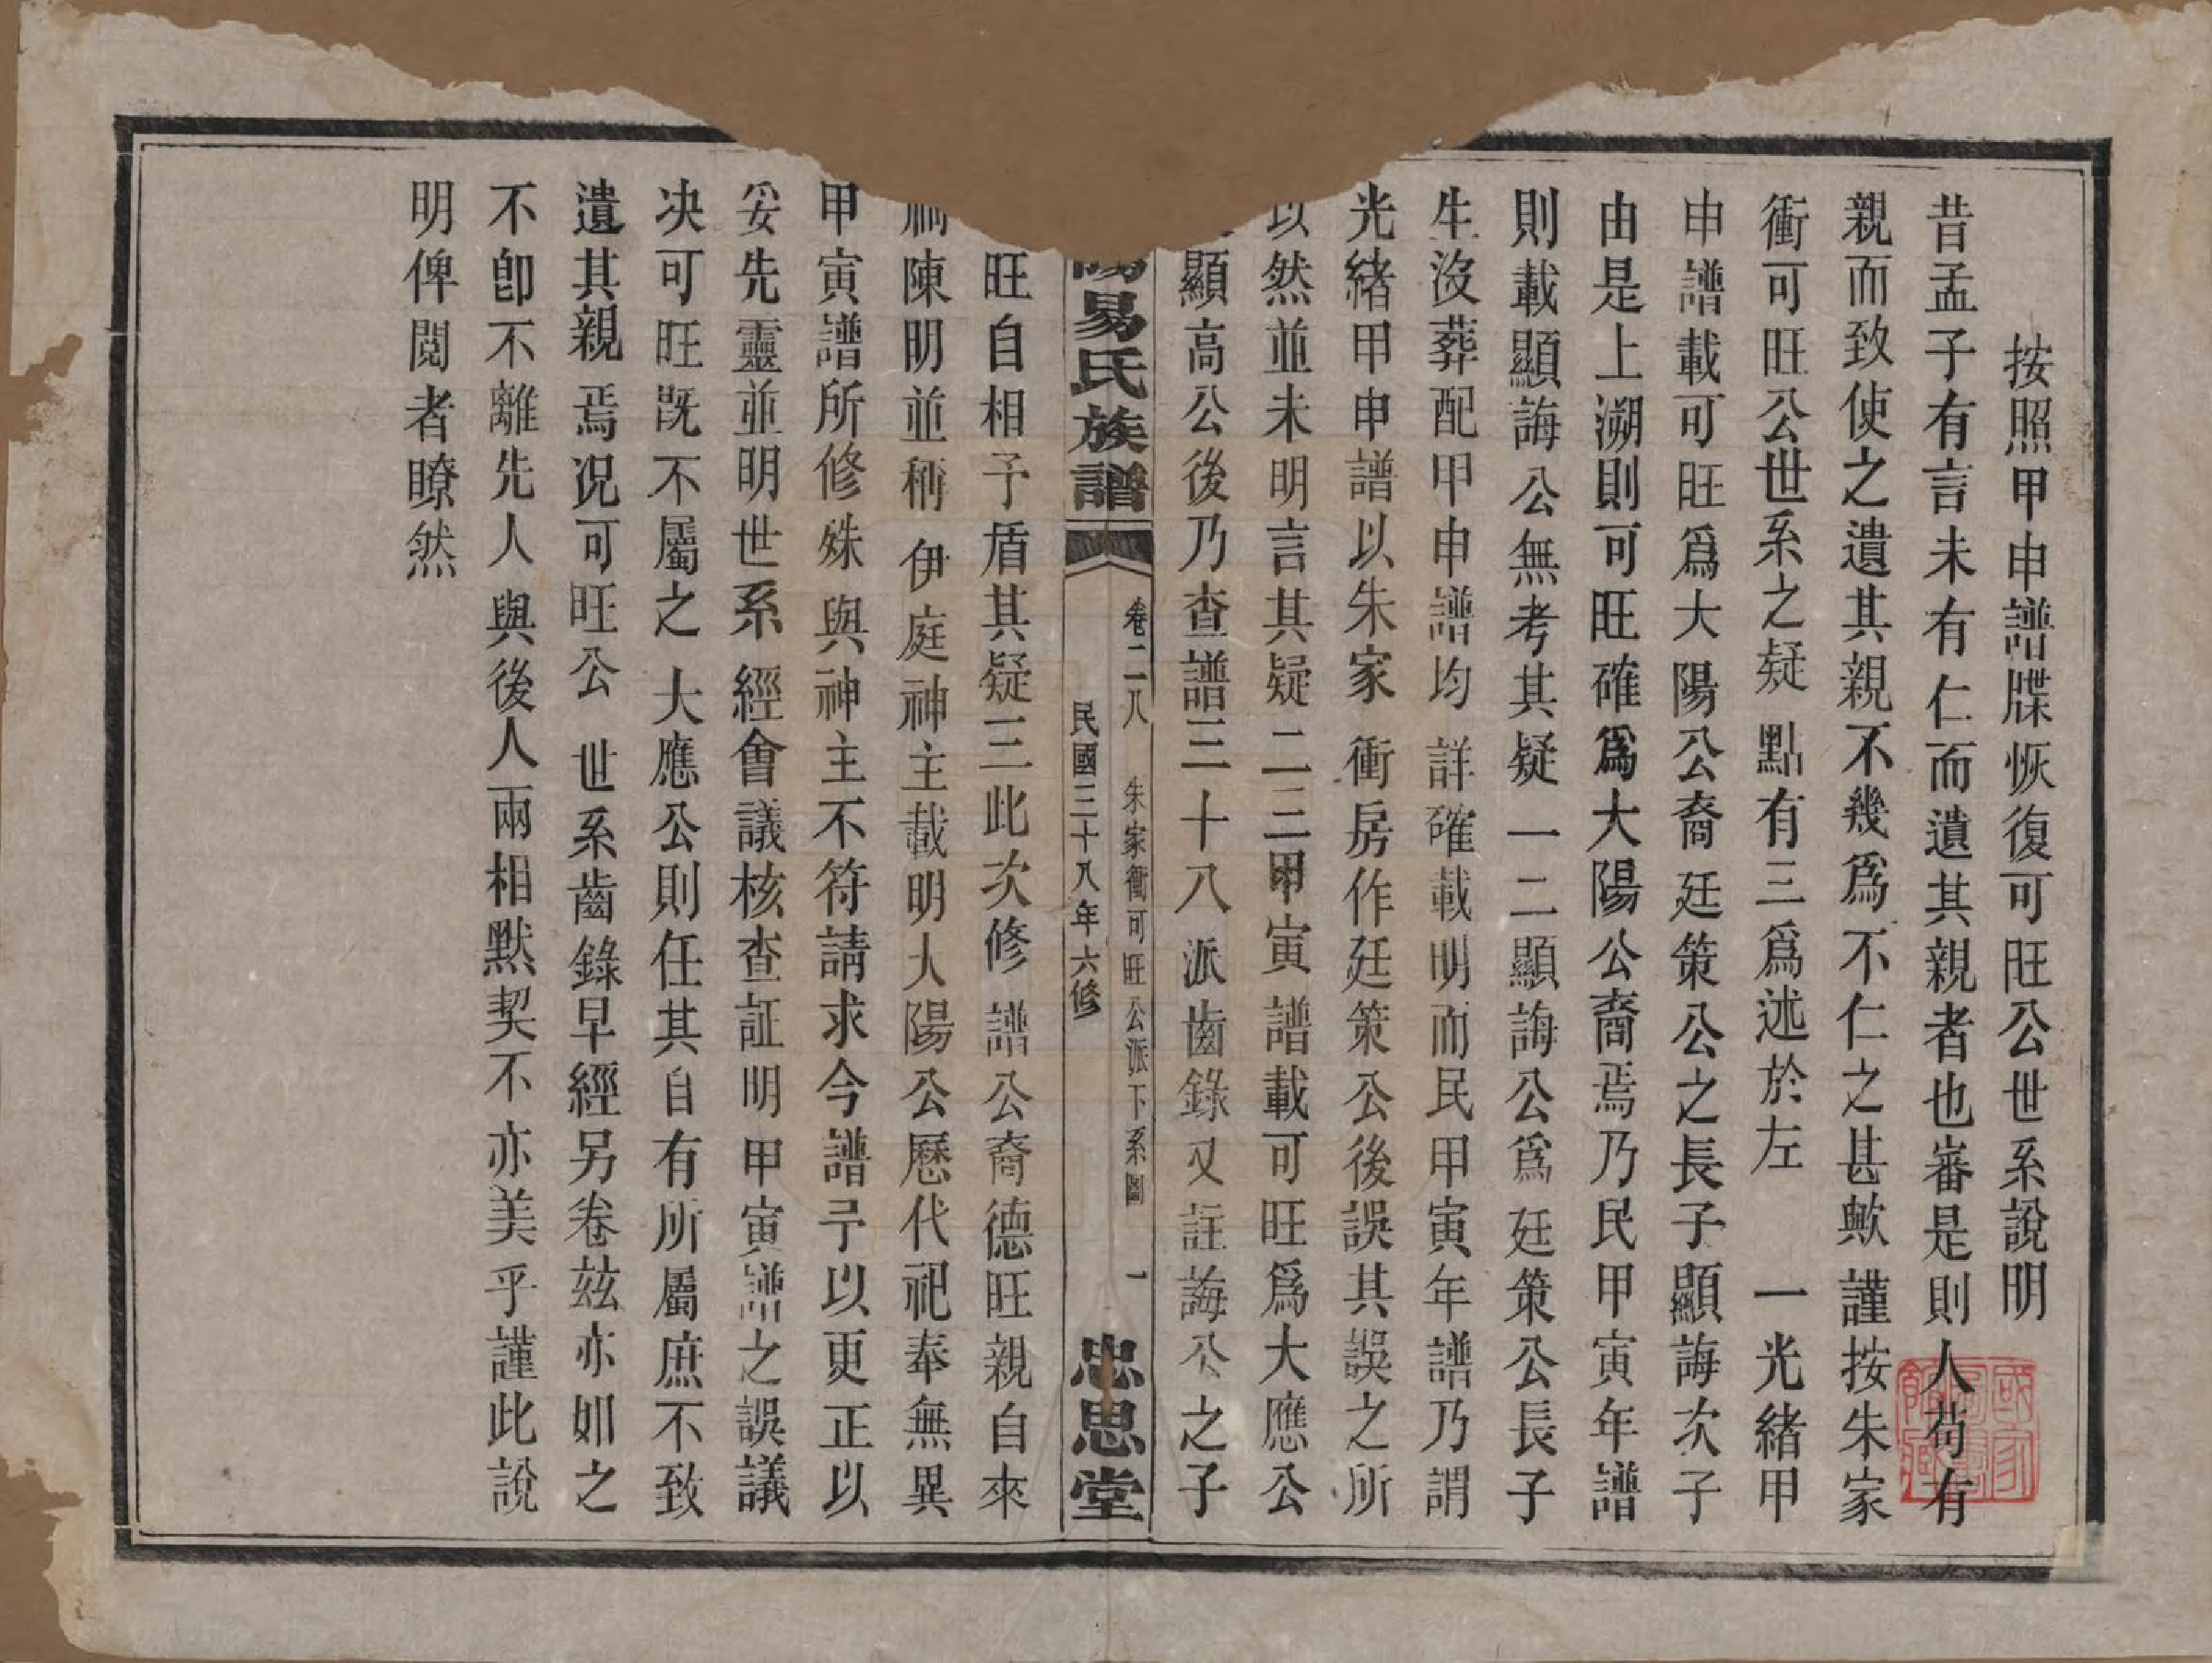 按照甲申譜牒恢復可旺公世系說明
昔孟子有言未有仁而遺其親者也審是則人茍有
親而致使之遺其親不幾爲不仁之甚歟謹按朱家
衝可旺公世系之疑點有三爲述於左 一光緒甲
申譜載可旺爲大陽公裔廷策公之長子顯誨次子
由是上溯則可旺確爲大陽公裔焉乃民甲寅年譜
則載顯誨公無考其疑一二顯誨公爲廷策公長子
生沒葬配甲申譜均詳確載明而民甲寅年譜乃謂
光緒甲申譜以朱家衝房作廷策公後誤其誤之所
以然並未明言其疑二三甲寅譜載可旺爲大應公
顯高公後乃查譜三十八派齒錄又註誨公之子
陽易氏族譜
卷二八 朱家衝可旺公派下系圖 一
民國三十八年六修
忠思堂
旺自相予盾其疑三此次修譜公裔德旺親自來
祠陳明並稱伊庭神主載明大陽公歷代祀奉無異
甲寅譜所修殊與神主不符請求今譜予以更正以
妥先靈並明世系經會議核查証明甲寅譜之誤議
决可旺既不屬之大應公則任其自有所屬庶不致
遺其親焉況可旺公世系齒錄早經另卷茲亦如之
不卽不離先人與後人兩相默契不亦美乎謹此說
明俾閱者瞭然